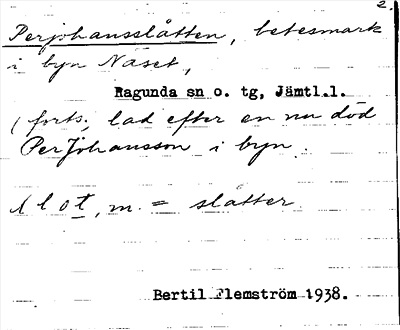 2.
Perjohansslåtten, betesmark
i byn Näset,
Ragunda sn o. tg, Jämtl.l.
(forts.; lad efter en nu död
Per Johansson i byn.
slot, m. = slåtter.
Bertil Flemström 1938.